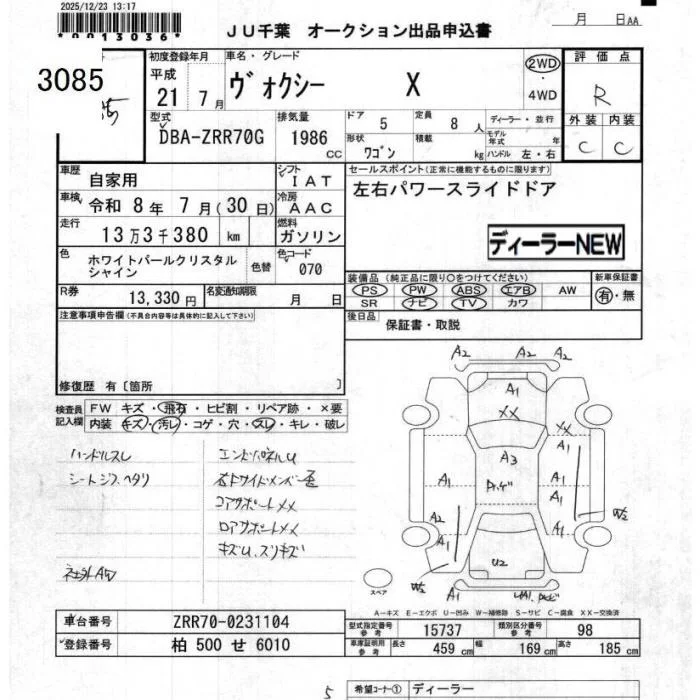 2025/12/23 13:17
*0013036*
JU千葉 オークション出品申込書
月 日AA
3085
初度登録年月
平成
21年 7月
車名・グレード
ヴォクシー X
2WD
・
4WD
評価点
R
外装 内装
C C
型式
DBA-ZRR70G
排気量
1986
cc
ドア
5
定員
8 人
形状
ワゴン
積載
kg
ディーラー・並行
モデル年式 年
ハンドル 左・右
車歴
自家用
車検
令和 8年 7月(30日)
走行
13万3千380 km
シフト
IAT
冷房
AAC
燃料
ガソリン
セールスポイント(正常に機能するものに限ります)
左右パワースライドドア
ディーラーNEW
色
ホワイトパールクリスタル
シャイン
色替
色コード
070
R券
13,330 円
名変通知期限
月 日
装備品(純正品に限り○をつけてください)
PS PW ABS エアB AW
SR ナビ TV カワ
新車保証書
有・無
後日品
保証書・取説
注意事項申告欄(不具合内容等は具体的に記入して下さい)
修復歴 有〔箇所 〕
検査員
記入欄
FW キズ・飛石・ヒビ割・リペア跡・×要
内装 キズ・汚レ・コゲ・穴・スレ・キレ・破レ
ハンドルスレ
シートシワ、ヘタリ
社外AW
エンドパネルU
コアサポートXX
ロアサポートXX
キズU、スリキズ
A2 A2 A2
A1
XX
XX
A3
A1
A1
A1
A1
A2
A1
A1
W2
U2
W2
A1
スペア
A-キズ E-エクボ U-凹み W-補修跡 S-サビ C-腐食 XX-交換済
車台番号
ZRR70-0231104
登録番号
柏 500 せ 6010
型式指定番号
参考
15737
類別区分番号
参考
98
車庫証明用
参考
長さ
459 cm
幅
169 cm
高さ
185 cm
5
希望コーナー① ディーラー